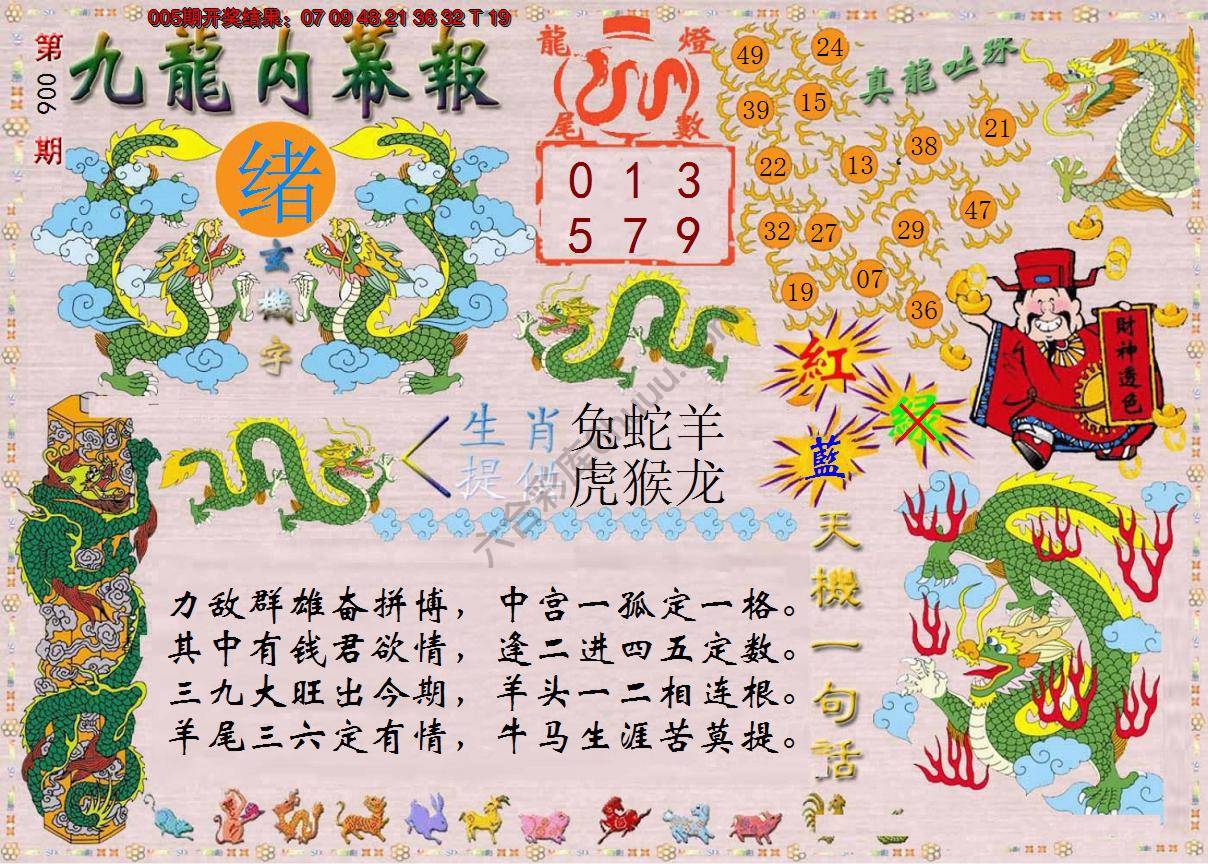 005期开奖结果：07 09 48 21 36 32 T 19
第
006
期
九龍内幕報
绪
玄
機
字
龍 燈
尾 數
0 1 3
5 7 9
真龍吐珠
49
24
39
15
21
38
22
13
47
32
27
29
07
19
36
財神透色
紅
綠
藍
生肖
提供
兔蛇羊
虎猴龙
天機一句話
力敌群雄奋拼博，中宫一孤定一格。
其中有钱君欲情，逢二进四五定数。
三九大旺出今期，羊头一二相连根。
羊尾三六定有情，牛马生涯苦莫提。